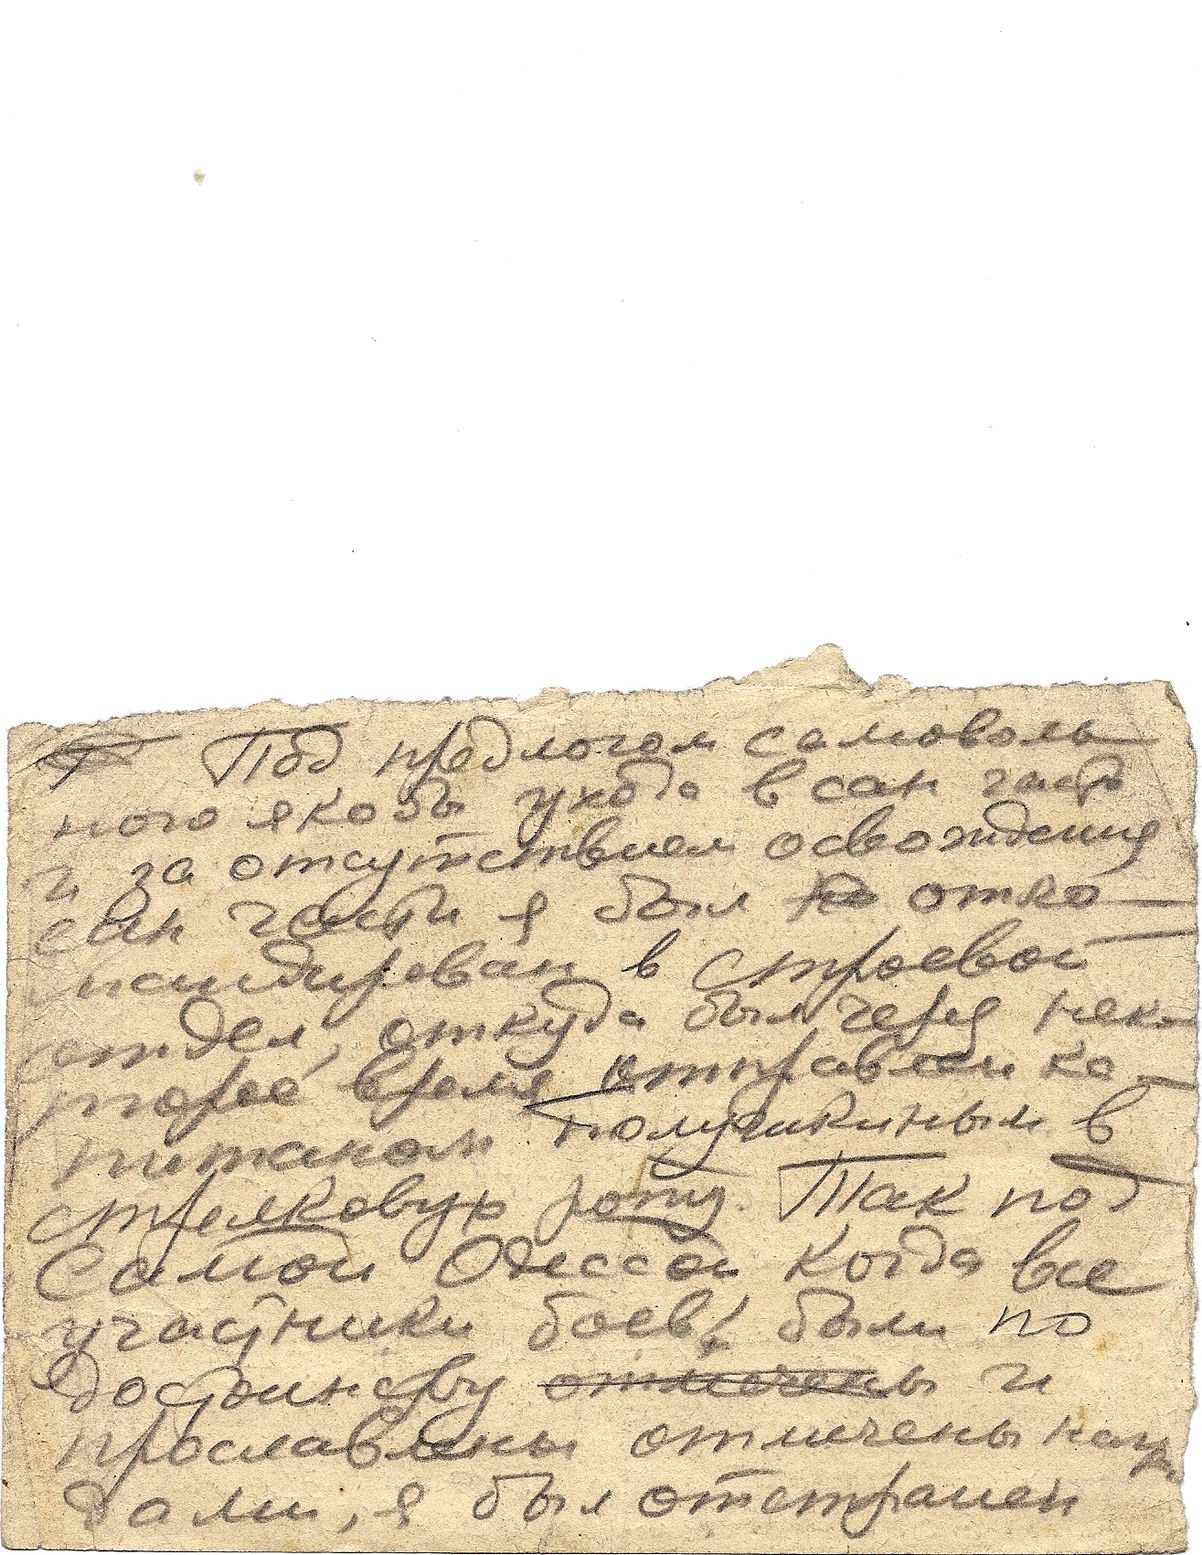 Под предлогом самоволь
ного якобы ухода в сан часть
и за отсутствием освождения
сан части я был отко-
мандирован в строевой
отдел, откуда был через нек-
торое время отправлен ка-
питаном Полушкиным в
стрелковую роту. Так под
Самой Одессой когда все
участники боев были по
достоинству отмечены и
прославлены отмечены нагр
дами, я был отстранен